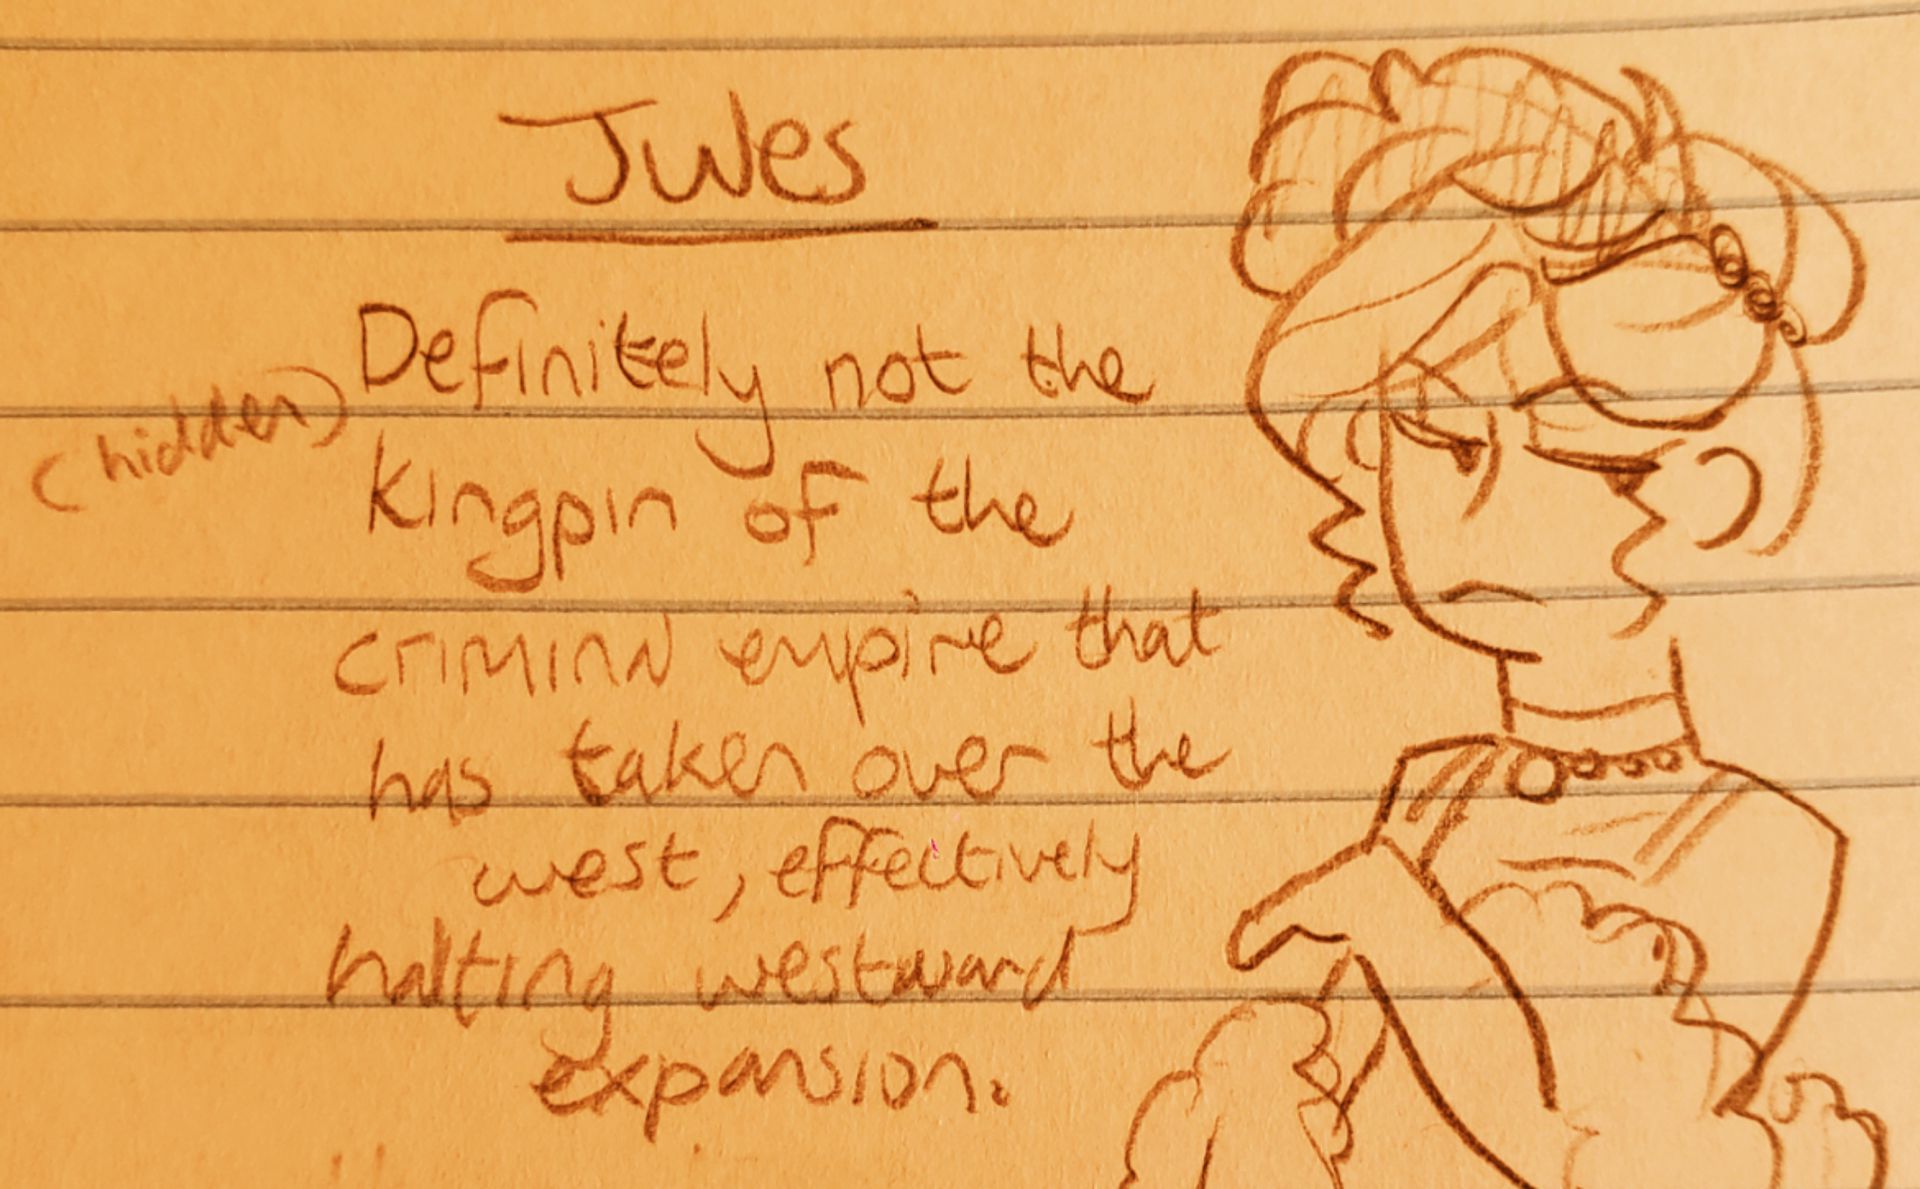 Jules
Definitely not the
(hidden)
kingpin of the
criminal empire that
has taken over the
west, effectively
halting westward
expansion.